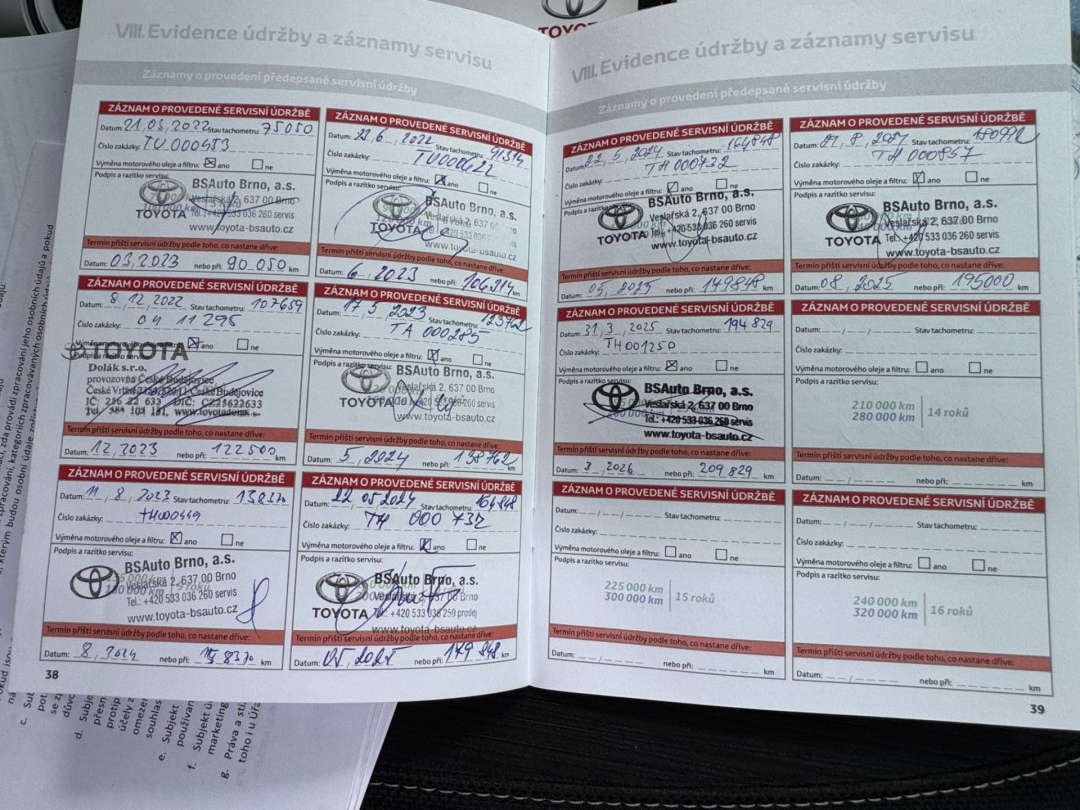 TOYOTA
VIII. Evidence údržby a záznamy servisu
Záznamy o provedení předepsané servisní údržby
ZÁZNAM O PROVEDENÉ SERVISNÍ ÚDRŽBĚ
Datum: 21.03.2022 Stav tachometru: 75050
Číslo zakázky: TU000453
Výměna motorového oleje a filtru: ☒ ano ☐ ne
Podpis a razítko servisu:
BSAuto Brno, a.s.
Veslařská 2, 637 00 Brno
TOYOTA Tel.: +420 533 036 260 servis
www.toyota-bsauto.cz
Termín příští servisní údržby podle toho, co nastane dříve:
Datum: 03.2023 nebo při: 90 050 km
ZÁZNAM O PROVEDENÉ SERVISNÍ ÚDRŽBĚ
Datum: 22.6.2022 Stav tachometru: 91314
Číslo zakázky: TU000622
Výměna motorového oleje a filtru: ☒ ano ☐ ne
Podpis a razítko servisu:
BSAuto Brno, a.s.
Veslařská 2, 637 00
TOYOTA Tel.: +420 533 036 260
www.toyota-bsauto.cz
Termín příští servisní údržby podle toho, co nastane dříve:
Datum: 6.2023 nebo při: 106314 km
ZÁZNAM O PROVEDENÉ SERVISNÍ ÚDRŽBĚ
Datum: 8.12.2022 Stav tachometru: 107659
Číslo zakázky: 04 11296
Výměna motorového oleje a filtru: ☒ ano ☐ ne
TOYOTA
Dolák s.r.o.
provozovna České Budějovice
České Budějovice
Termín příští servisní údržby podle toho, co nastane dříve:
Datum: 12.2023 nebo při: 122500 km
ZÁZNAM O PROVEDENÉ SERVISNÍ ÚDRŽBĚ
Datum: 17.5.2023 Stav tachometru: 123762
Číslo zakázky: TA 000285
Výměna motorového oleje a filtru: ☒ ano ☐ ne
Podpis a razítko servisu:
BSAuto Brno, a.s.
Veslařská 2, 637 00 Brno
TOYOTA Tel.: +420 533 036 260 servis
www.toyota-bsauto.cz
Termín příští servisní údržby podle toho, co nastane dříve:
Datum: 5.2024 nebo při: 138762 km
ZÁZNAM O PROVEDENÉ SERVISNÍ ÚDRŽBĚ
Datum: 11.8.2023 Stav tachometru: 138370
Číslo zakázky: TH000449
Výměna motorového oleje a filtru: ☒ ano ☐ ne
Podpis a razítko servisu:
BSAuto Brno, a.s.
Veslařská 2, 637 00 Brno
TOYOTA Tel.: +420 533 036 260 servis
www.toyota-bsauto.cz
Termín příští servisní údržby podle toho, co nastane dříve:
Datum: 8.2024 nebo při: km
ZÁZNAM O PROVEDENÉ SERVISNÍ ÚDRŽBĚ
Datum: 22 05 2024 Stav tachometru: 164848
Číslo zakázky: TH 000 732
Výměna motorového oleje a filtru: ☒ ano ☐ ne
Podpis a razítko servisu:
BSAuto Brno, a.s.
Veslařská 2, 637 00 Brno
TOYOTA Tel.: +420 533 036 250 prodej
www.toyota-bsauto.cz
Termín příští servisní údržby podle toho, co nastane dříve:
Datum: 05.2025 nebo při: 179 848 km
38
VIII. Evidence údržby a záznamy servisu
Záznamy o provedení předepsané servisní údržby
ZÁZNAM O PROVEDENÉ SERVISNÍ ÚDRŽBĚ
Datum: 22.5.2024 Stav tachometru: 164848
Číslo zakázky: TH 000732
Výměna motorového oleje a filtru: ☑ ano ☐ ne
Podpis a razítko servisu:
BSAuto Brno, a.s.
Veslařská 2, 637 00 Brno
TOYOTA Tel.: +420 533 036 260 servis
www.toyota-bsauto.cz
Termín příští servisní údržby podle toho, co nastane dříve:
Datum: 05.2025 nebo při: 149848 km
ZÁZNAM O PROVEDENÉ SERVISNÍ ÚDRŽBĚ
Stav tachometru:
Číslo zakázky: TH 000857
Výměna motorového oleje a filtru: ☑ ano ☐ ne
Podpis a razítko servisu:
BSAuto Brno, a.s.
Veslařská 2, 637 00 Brno
TOYOTA Tel.: +420 533 036 260 servis
www.toyota-bsauto.cz
Termín příští servisní údržby podle toho, co nastane dříve:
Datum: 08.2025 nebo při: 195000 km
ZÁZNAM O PROVEDENÉ SERVISNÍ ÚDRŽBĚ
Datum: 31.3.2025 Stav tachometru: 194 829
Číslo zakázky: TH001250
Výměna motorového oleje a filtru: ☒ ano ☐ ne
Podpis a razítko servisu:
BSAuto Brno, a.s.
Veslařská 2, 637 00 Brno
Tel.: +420 533 036 260 servis
www.toyota-bsauto.cz
Termín příští servisní údržby podle toho, co nastane dříve:
Datum: 3 2026 nebo při: 209 829 km
ZÁZNAM O PROVEDENÉ SERVISNÍ ÚDRŽBĚ
Datum: Stav tachometru:
Číslo zakázky:
Výměna motorového oleje a filtru: ☐ ano ☐ ne
Podpis a razítko servisu:
210 000 km
280 000 km
14 roků
Termín příští servisní údržby podle toho, co nastane dříve:
Datum: nebo při: km
ZÁZNAM O PROVEDENÉ SERVISNÍ ÚDRŽBĚ
Datum: Stav tachometru:
Číslo zakázky:
Výměna motorového oleje a filtru: ☐ ano ☐ ne
Podpis a razítko servisu:
225 000 km
300 000 km
15 roků
Termín příští servisní údržby podle toho, co nastane dříve:
Datum: nebo při: km
ZÁZNAM O PROVEDENÉ SERVISNÍ ÚDRŽBĚ
Datum: Stav tachometru:
Číslo zakázky:
Výměna motorového oleje a filtru: ☐ ano ☐ ne
Podpis a razítko servisu:
240 000 km
320 000 km
16 roků
Termín příští servisní údržby podle toho, co nastane dříve:
Datum: nebo při: km
39